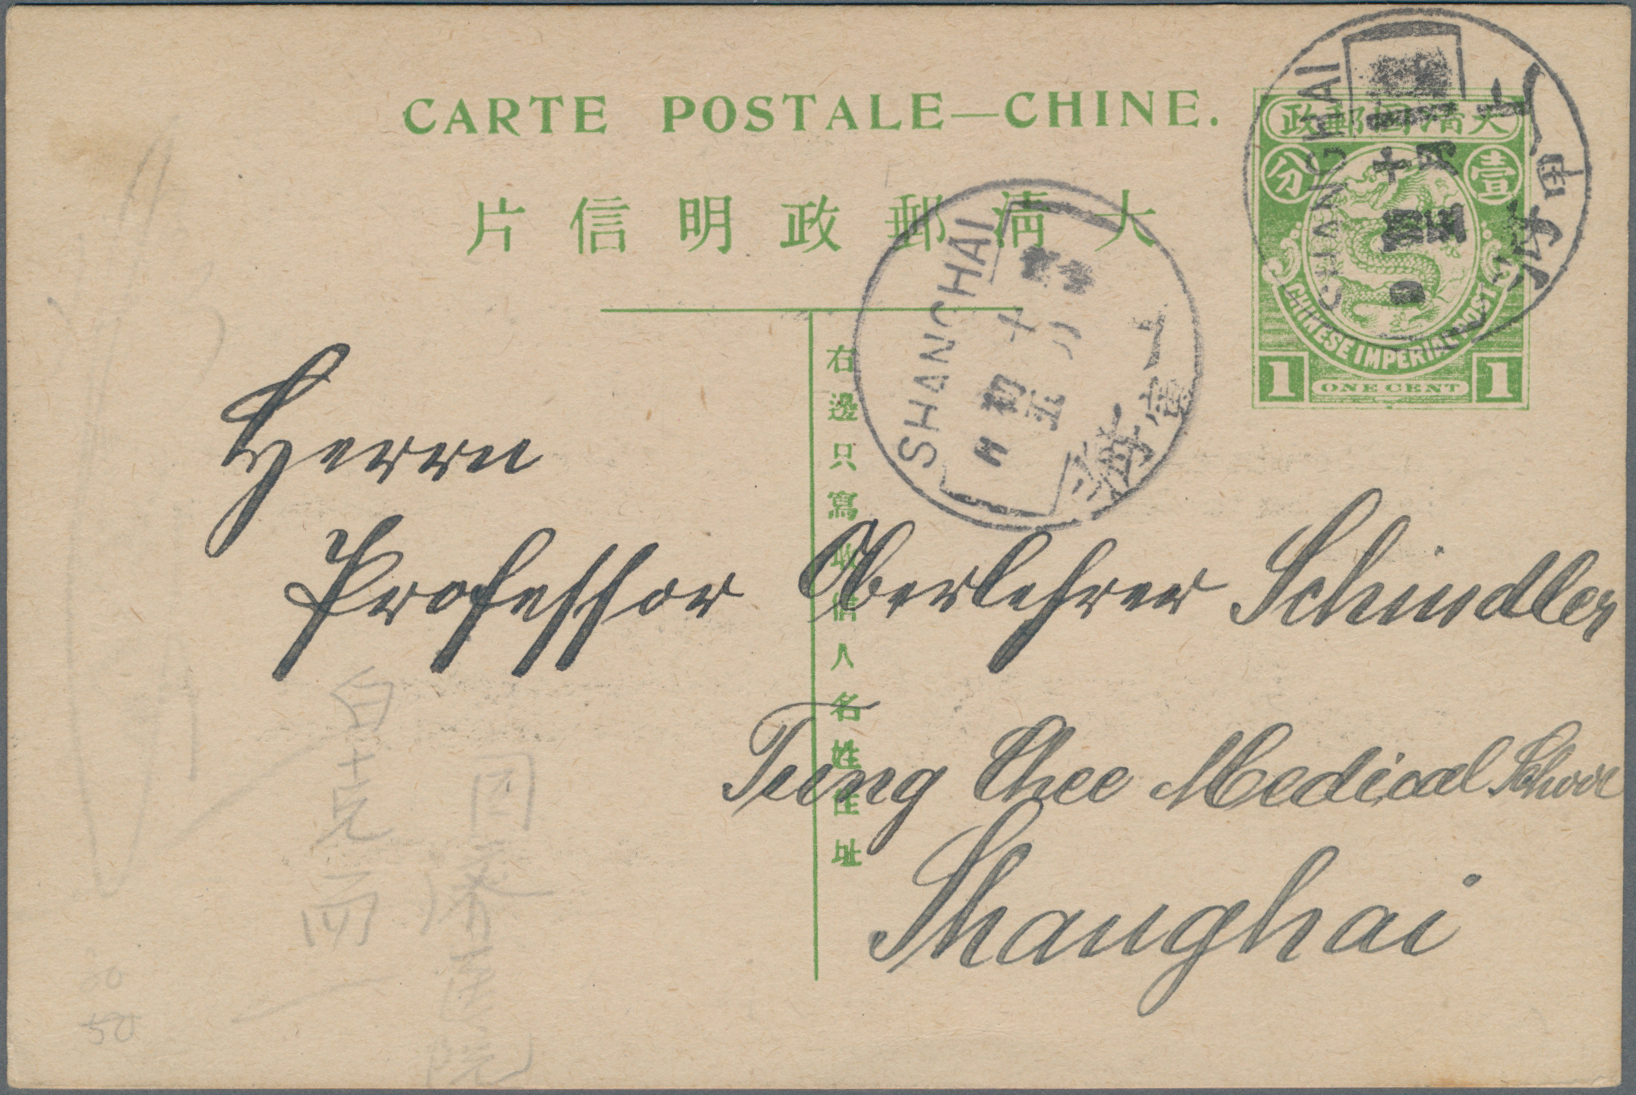 CARTE POSTALE—CHINE.
大清郵政明信片
大清國郵政
壹 分
CHINESE IMPERIAL POST
1 ONE CENT 1
SHANGHAI
上海
SHANGHAI
上海
右邊只寫收信人名姓住址
Herrn
Professor Oberlehrer Schindler
Tung Chee Medical School
Shanghai
醫院
50